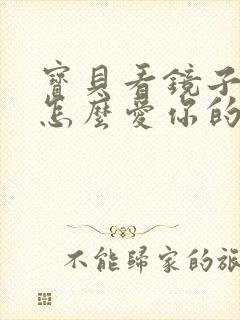 寶貝看鏡子
怎麼愛你的
不能歸家的旅